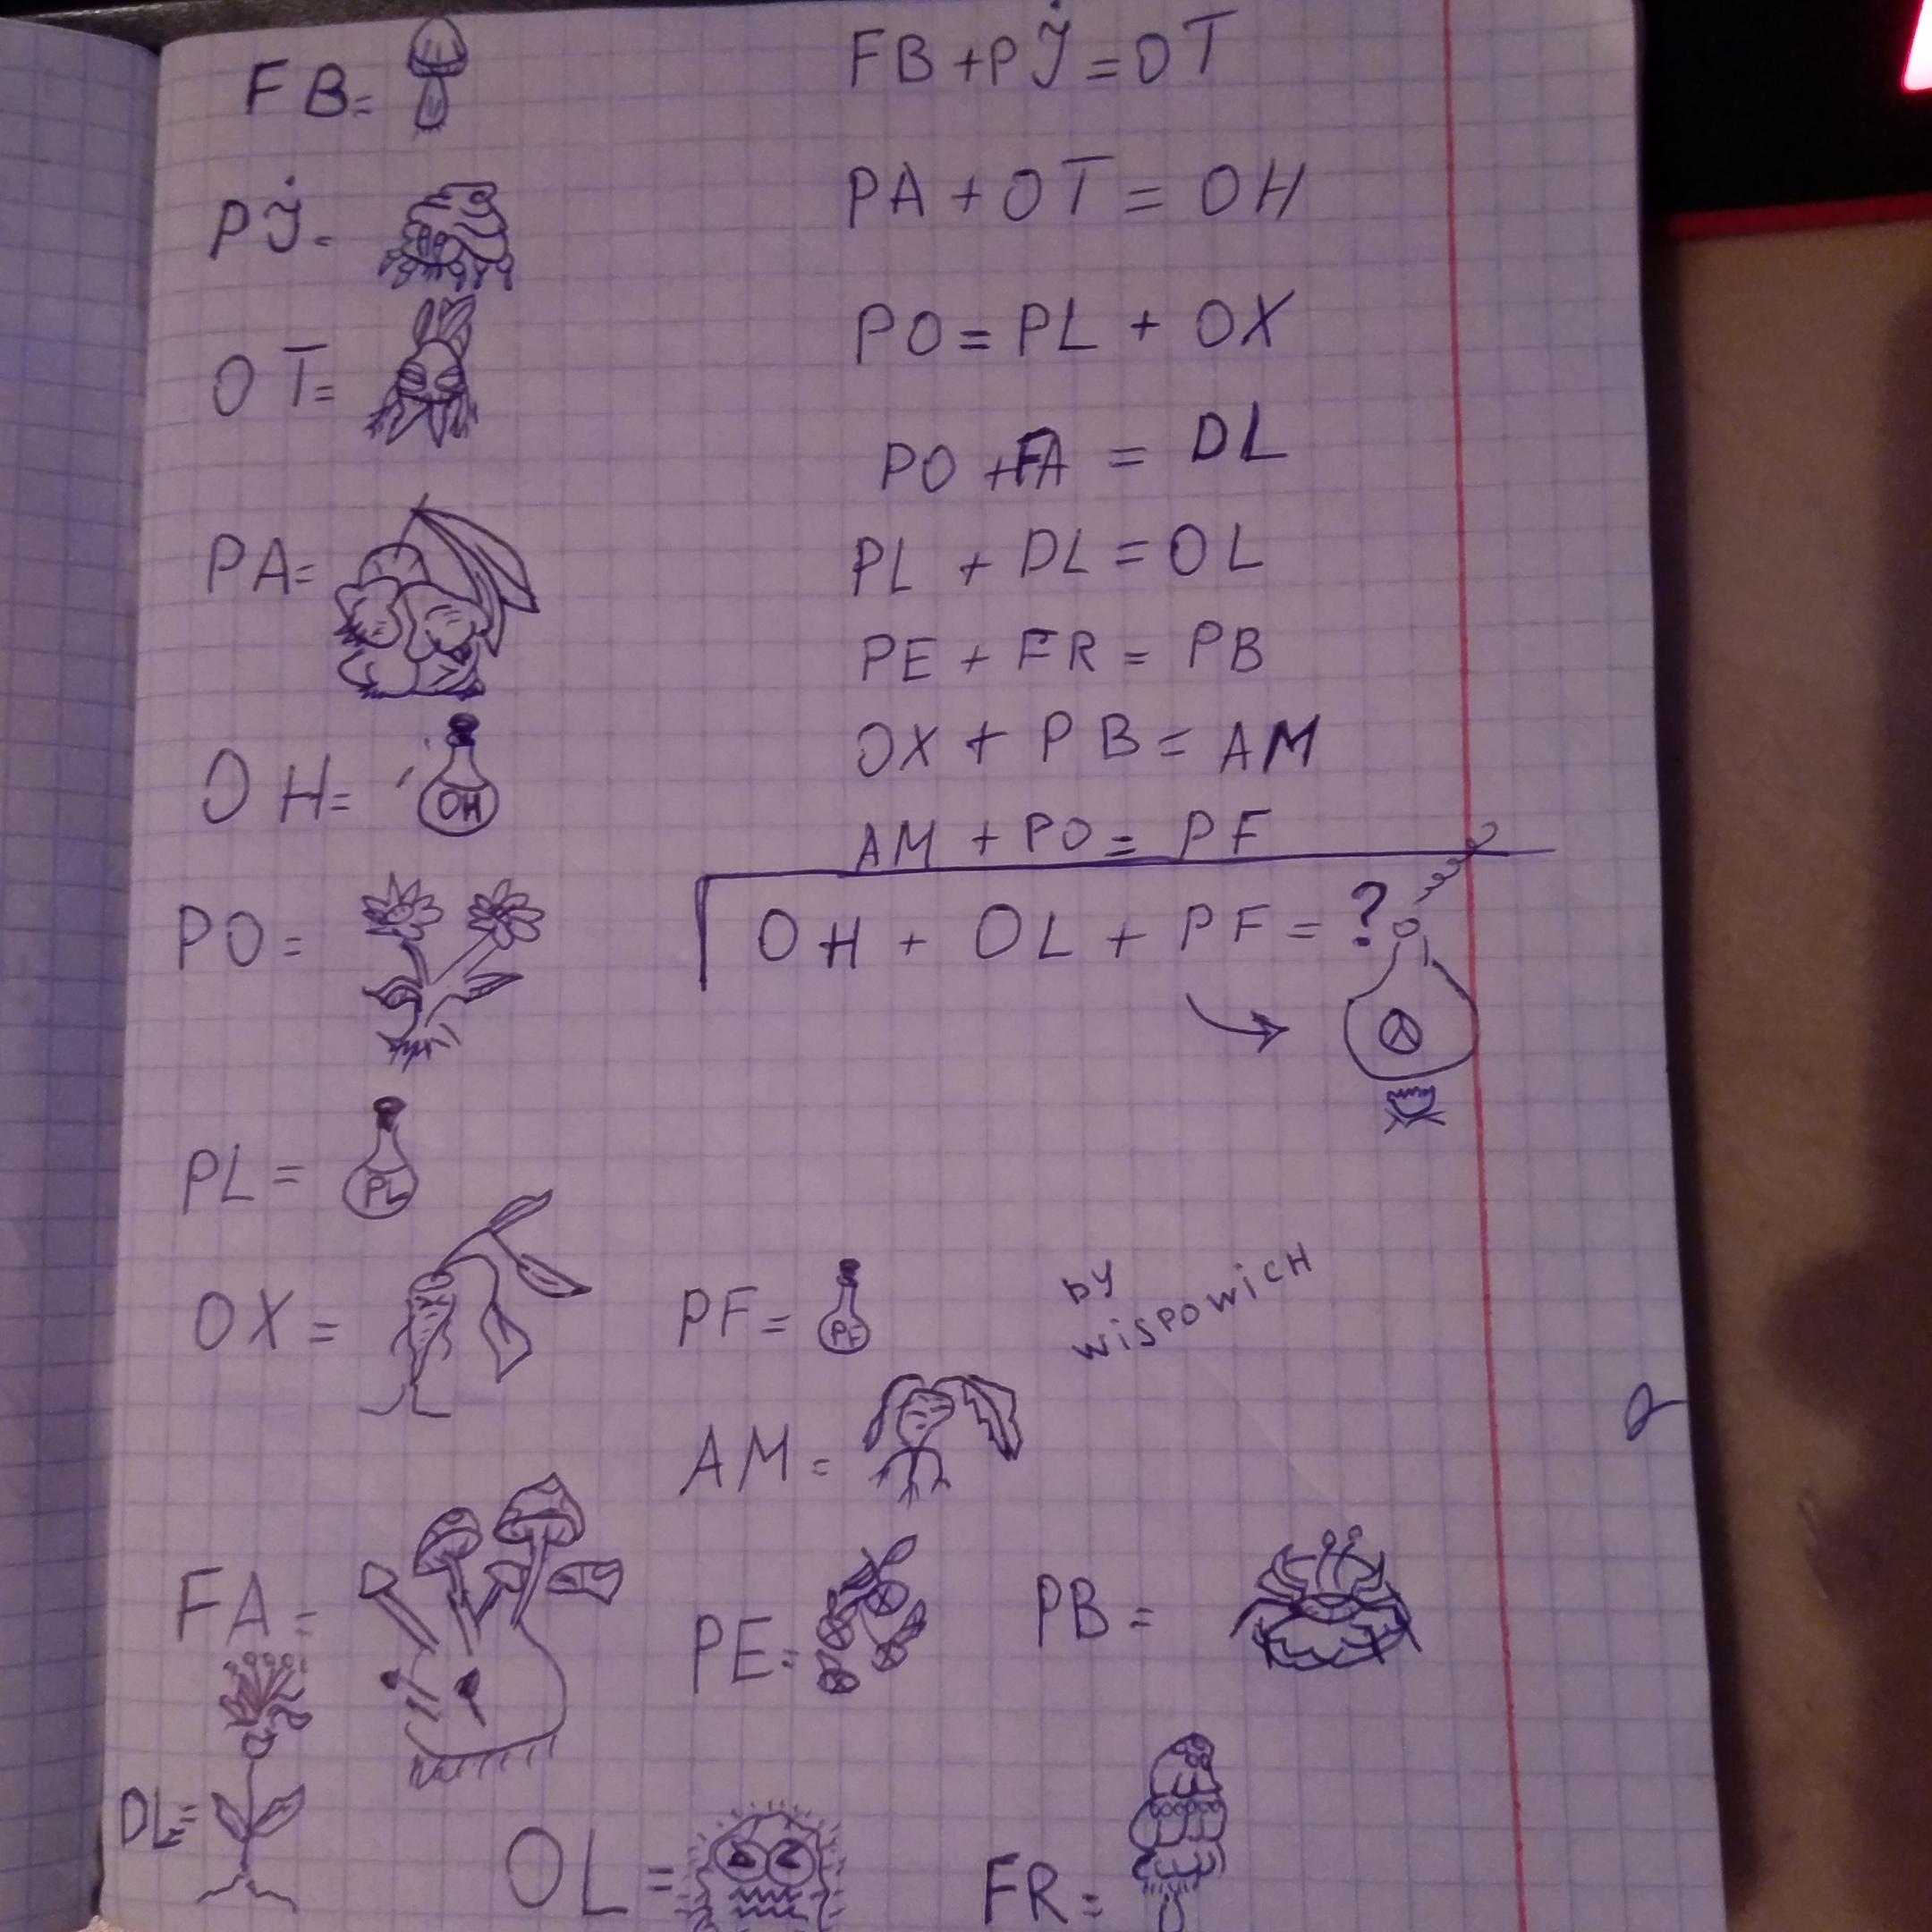 FB=
PJ̇=
OT=
PA=
OH=
OH
PO=
PL=
PL
OX=
FA=
DL=
OL=
FB+PJ̇=OT
PA+OT=OH
PO=PL+OX
PO+FA=DL
PL+DL=OL
PE+FR=PB
OX+PB=AM
AM+PO=PF
OH+OL+PF=?
PF=
PF
by
WiSPOWiCH
AM=
PE=
PB=
FR=